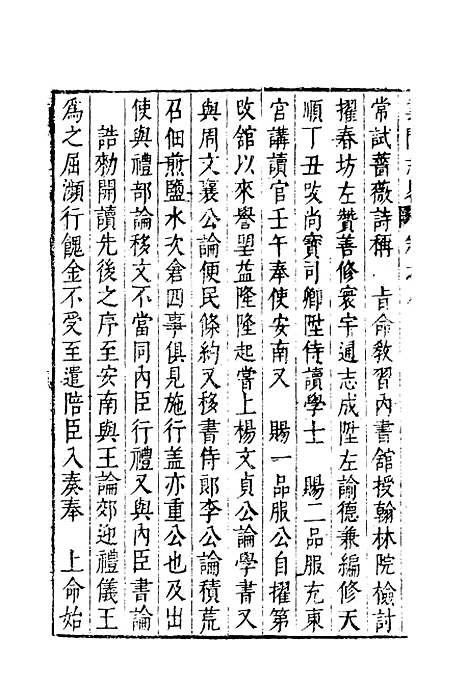 常試薔薇詩稱　旨命敎習內書館授翰林院檢討
擢春坊左贊善修寰宇通志成陞左諭德兼編修天
順丁丑攺尚寶司卿陞侍讀學士　賜二品服充東
宮講讀官壬午奉使安南又　賜一品服公自擢第
攺舘以來譽望益隆隆起嘗上楊文貞公論學書又
與周文襄公論便民條約又移書侍郎李公論積荒
召佃煎鹽水次倉四事俱見施行盖亦重公也及出
使與禮部論移文不當同內臣行禮又與內臣書論
誥勑開讀先後之序至安南與王論郊迎禮儀王
爲之屈瀕行餽金不受至遣陪臣入奏奉　上命始